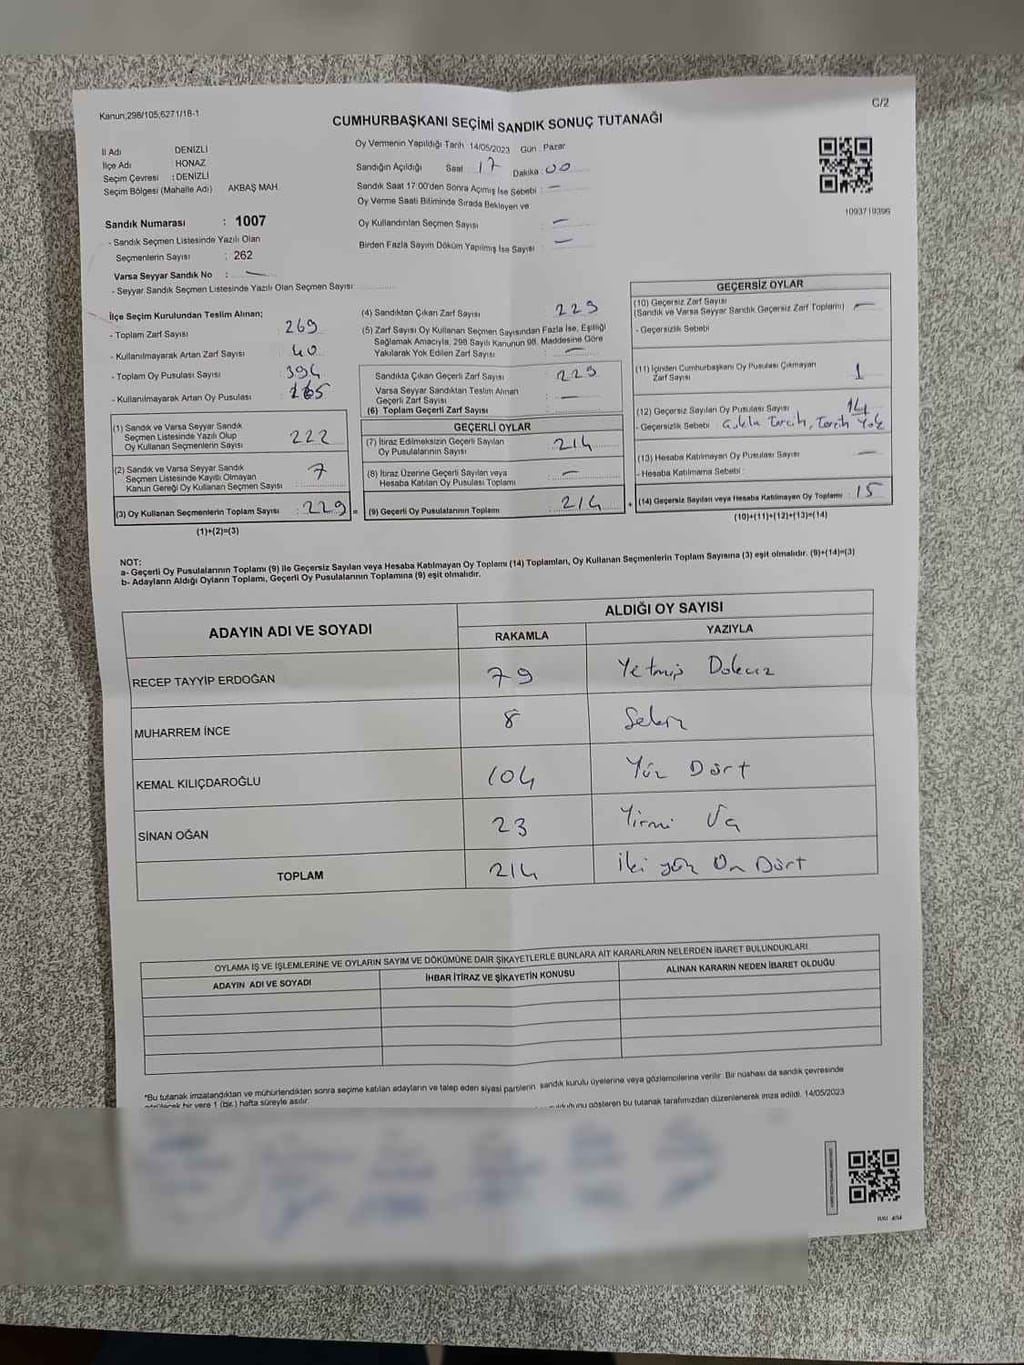 Kanun;298/105,6271/18-1
C/2
CUMHURBAŞKANI SEÇİMİ SANDIK SONUÇ TUTANAĞI
İl Adı DENİZLİ
İlçe Adı : HONAZ
Seçim Çevresi : DENİZLİ
Seçim Bölgesi (Mahalle Adı) AKBAŞ MAH.
Oy Vermenin Yapıldığı Tarih 14/05/2023 Gün : Pazar
Sandığın Açıldığı Saat 17 Dakika 00
Sandık Saat 17:00'den Sonra Açımış İse Sebebi : —
Oy Verme Saati Bitiminde Sırada Bekleyen ve
Oy Kullandırılan Seçmen Sayısı —
Birden Fazla Sayım Döküm Yapılmış İse Sayısı —
1093719396
Sandık Numarası : 1007
- Sandık Seçmen Listesinde Yazılı Olan
Seçmenlerin Sayısı : 262
Varsa Seyyar Sandık No : —
- Seyyar Sandık Seçmen Listesinde Yazılı Olan Seçmen Sayısı
İlçe Seçim Kurulundan Teslim Alınan;
- Toplam Zarf Sayısı 269
- Kullanılmayarak Artan Zarf Sayısı 40
- Toplam Oy Pusulası Sayısı 394
- Kullanılmayarak Artan Oy Pusulası 165
(1) Sandık ve Varsa Seyyar Sandık
Seçmen Listesinde Yazılı Olup
Oy Kullanan Seçmenlerin Sayısı 222
(2) Sandık ve Varsa Seyyar Sandık
Seçmen Listesinde Kayıtlı Olmayan
Kanun Gereği Oy Kullanan Seçmen Sayısı 7
(3) Oy Kullanan Seçmenlerin Toplam Sayısı : 229
(1)+(2)=(3)
(4) Sandıktan Çıkan Zarf Sayısı 229
(5) Zarf Sayısı Oy Kullanan Seçmen Sayısından Fazla İse, Eşitliği
Sağlamak Amacıyla, 298 Sayılı Kanunun 98. Maddesine Göre
Yakılarak Yok Edilen Zarf Sayısı —
Sandıkta Çıkan Geçerli Zarf Sayısı 229
Varsa Seyyar Sandıktan Teslim Alınan
Geçerli Zarf Sayısı —
(6) Toplam Geçerli Zarf Sayısı
GEÇERLİ OYLAR
(7) İtiraz Edilmeksizin Geçerli Sayılan
Oy Pusulalarının Sayısı 214
(8) İtiraz Üzerine Geçerli Sayılan veya
Hesaba Katılan Oy Pusulası Toplamı —
(9) Geçerli Oy Pusulalarının Toplamı 214
GEÇERSİZ OYLAR
(10) Geçersiz Zarf Sayısı
(Sandık ve Varsa Seyyar Sandık Geçersiz Zarf Toplamı) —
- Geçersizlik Sebebi
(11) İçinden Cumhurbaşkanı Oy Pusulası Çıkmayan
Zarf Sayısı 1
(12) Geçersiz Sayılan Oy Pusulası Sayısı 14
- Geçersizlik Sebebi Çoklu Tercih, Tercih Yok
(13) Hesaba Katılmayan Oy Pusulası Sayısı —
- Hesaba Katılmama Sebebi :
(14) Geçersiz Sayılan veya Hesaba Katılmayan Oy Toplamı : 15
(10)+(11)+(12)+(13)=(14)
NOT:
a- Geçerli Oy Pusulalarının Toplamı (9) ile Geçersiz Sayılan veya Hesaba Katılmayan Oy Toplamı (14) Toplamları, Oy Kullanan Seçmenlerin Toplam Sayısına (3) eşit olmalıdır. (9)+(14)=(3)
b- Adayların Aldığı Oyların Toplamı, Geçerli Oy Pusulalarının Toplamına (9) eşit olmalıdır.
ADAYIN ADI VE SOYADI
ALDIĞI OY SAYISI
RAKAMLA YAZIYLA
RECEP TAYYİP ERDOĞAN 79 Yetmiş Dokuz
MUHARREM İNCE 8 Sekiz
KEMAL KILIÇDAROĞLU 104 Yüz Dört
SİNAN OĞAN 23 Yirmi Üç
TOPLAM 214 İki yüz On Dört
OYLAMA İŞ VE İŞLEMLERİNE VE OYLARIN SAYIM VE DÖKÜMÜNE DAİR ŞİKAYETLERLE BUNLARA AİT KARARLARIN NELERDEN İBARET BULUNDUKLARI
ADAYIN ADI VE SOYADI İHBAR İTİRAZ VE ŞİKAYETİN KONUSU ALINAN KARARIN NEDEN İBARET OLDUĞU
*Bu tutanak imzalandıktan ve mühürlendikten sonra seçime katılan adayların ve talep eden siyasi partilerin sandık kurulu üyelerine veya gözlemcilerine verilir. Bir nüshası da sandık çevresinde
görülecek bir yere 1 (bir) hafta süreyle asılır.
gösteren bu tutanak tarafımızdan düzenlenerek imza edildi. 14/05/2023